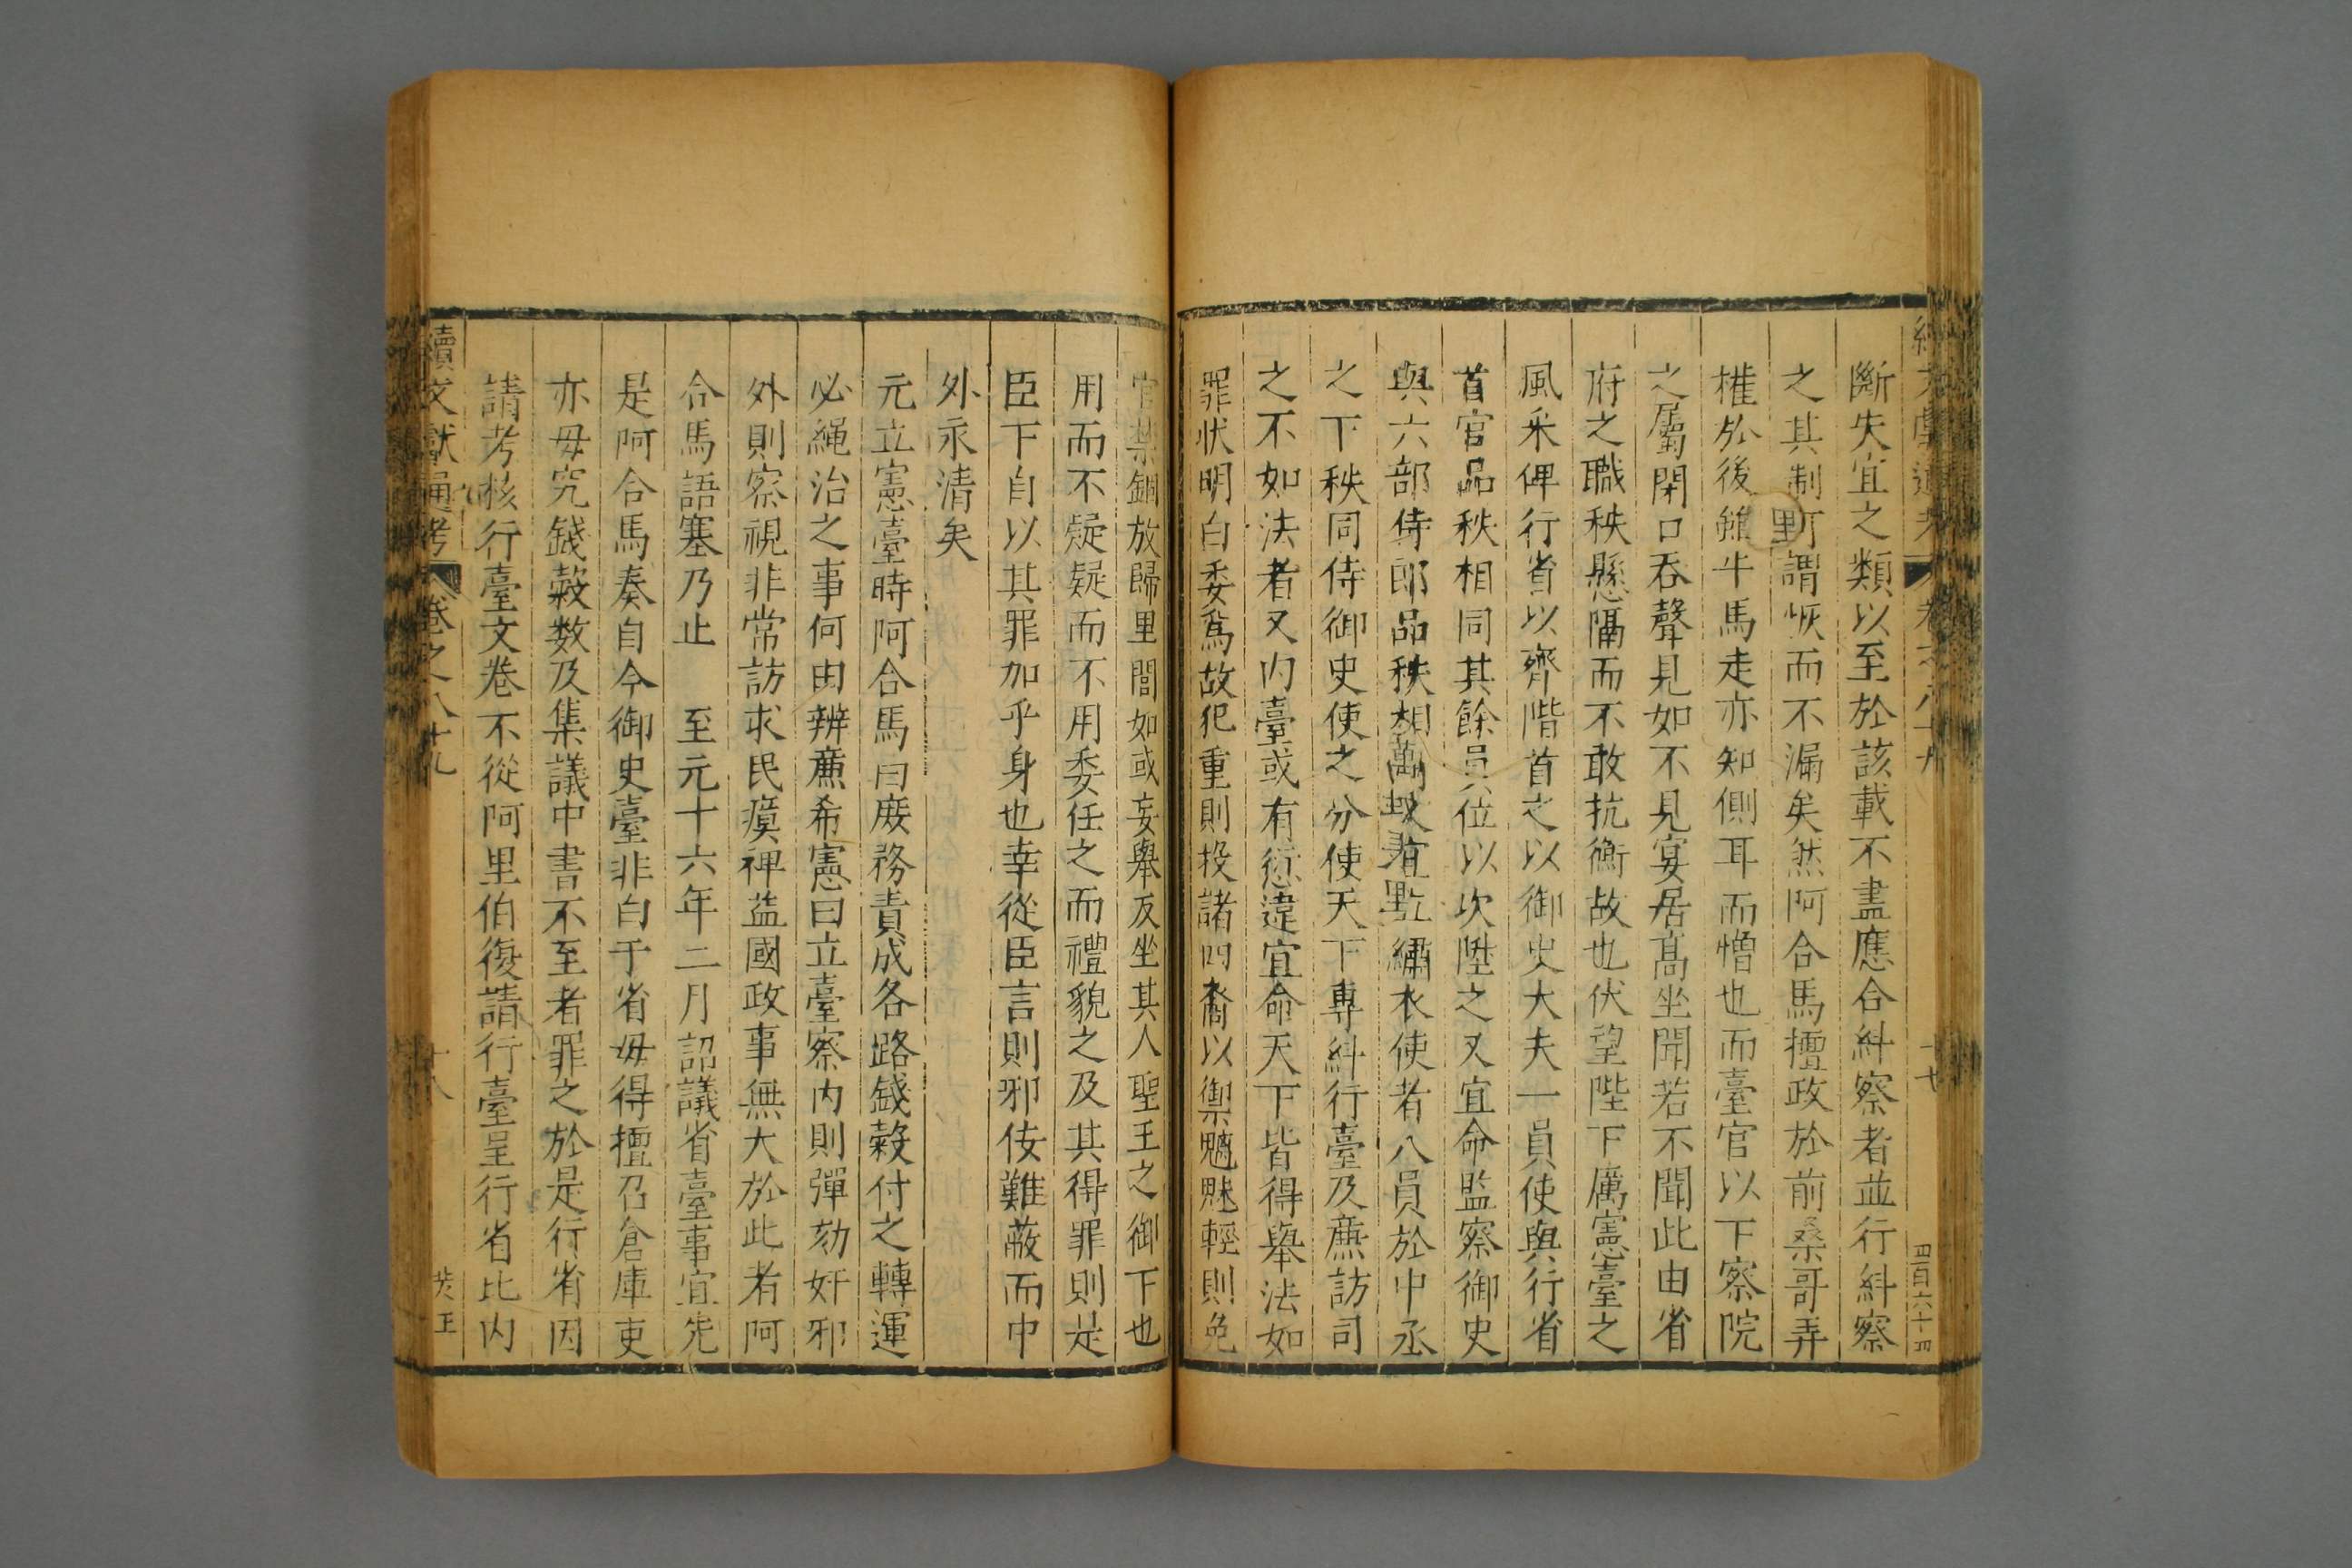 斷失宜之類以至於該載不盡應合糾察者並行糾察
之其制可謂恢而不漏矣然阿合馬擅政於前桑哥弄
權於後雖牛馬走亦知側耳而憎也而臺官以下察院
之屬閉口吞聲見如不見宴居高坐聞若不聞此由省
府之職秩懸隔而不敢抗衡故也伏望陛下厲憲臺之
風采俾行省以齊階首之以御史大夫一員使與行省
首官品秩相同其餘員位以次陞之又宜命監察御史
與六部侍郎品秩相 繡衣使者八員於中丞
之下秩同侍御史使之分使天下專糾行臺及廉訪司
之不如法者又內臺或有愆違宜命天下皆得舉法如
罪狀明白委為故犯重則投諸四裔以禦魑魅輕則免
官禁錮放歸里閭如或妄舉反坐其人聖王之御下也
用而不疑疑而不用委任之而禮貌之及其得罪則是
臣下自以其罪加乎身也幸從臣言則邪佞難蔽而中
外永清矣
元立憲臺時阿合馬曰庶務責成各路錢穀付之轉運
必繩治之事何由辨廉希憲曰立臺察內則彈劾奸邪
外則察視非常訪求民瘼裨益國政事無大於此者阿
合馬語塞乃止 至元十六年二月詔議省臺事宜先
是阿合馬奏自今御史臺非白于省毋得擅召倉庫吏
亦毋究錢穀数及集議中書不至者罪之於是行省因
請考核行臺文卷不從阿里伯復請行臺呈行省比內
續文獻通考 卷之八十九 十八